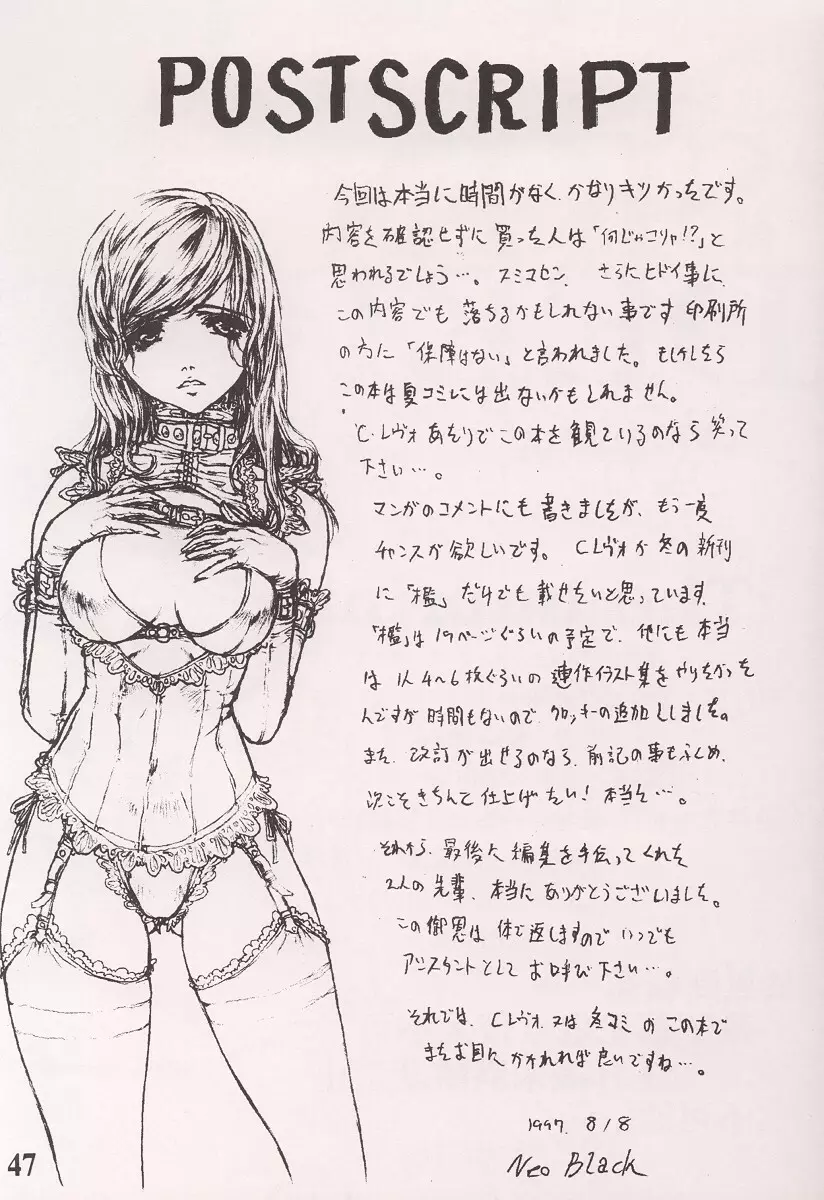 POSTSCRIPT
今回は本当に時間がなく、かなりキツかったです。
内容を確認せずに買った人は「何じゃコリャ!?」と
思われるでしょう…。スミマセン、さらにヒドイ事に、
この内容でも落ちるかもしれない事です 印刷所
の方に「保障はない」と言われました。もしかしたら
この本は夏コミには出ないかもしれません。
C.レヴォあたりでこの本を観ているのなら笑って
下さい…。
マンガのコメントにも書きましたが、もう一度
チャンスが欲しいです。Cレヴォか冬の新刊
に「檻」だけでも載せたいと思っています。
「檻」は19ページぐらいの予定で、他にも本当
は1人4〜6枚ぐらいの連作イラスト集をやりたかった
んですが時間もないので、クロッキーの追加にしました。
また、改訂が出せるのなら、前記の事もふくめ、
次こそきちんと仕上げたい!本当に…。
それから、最後に編集を手伝ってくれた
2人の先輩、本当にありがとうございました。
この御恩は体で返しますのでいつでも
アシスタントとしてお呼び下さい…。
それでは、Cレヴォ、又は冬コミのこの本で
またお目にかかれれば良いですね…。
1997. 8/8
Neo Black
47